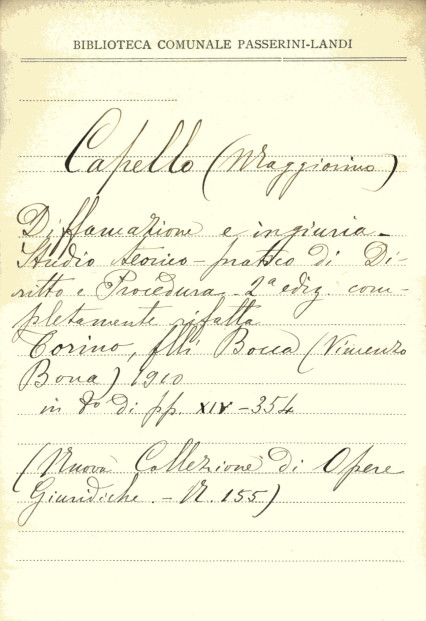 BIBLIOTECA COMUNALE PASSERINI-LANDI
Capello (Maggiorino)
Diffamazione e ingiuria -
Studio teorico-pratico di Di-
ritto e Procedura - 2ª ediz. com-
pletamente rifatta
Torino, flli Bocca (Vincenzo
Bona) 1910
in 8º di pp. XIV - 354
(Nuova Collezione di Opere
Giuridiche. - N. 155)